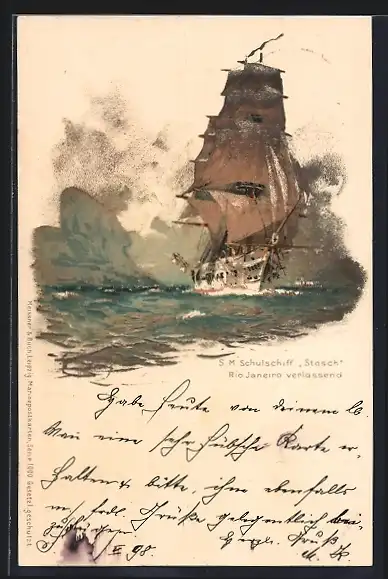 S.M. Schulschiff „Stosch“
Rio Janeiro verlassend
Meissner & Buch, Leipzig, Marinepostkarten, Serie 1000 Gesetzl. geschützt.
Habe heute von deinem lb.
Man eine sehr hübsche Karte er-
halten & bitte, ihm ebenfalls
m/ frdl. Grüße gelegentlich bei-
zufügen. Herzl. Gruß
II 98.